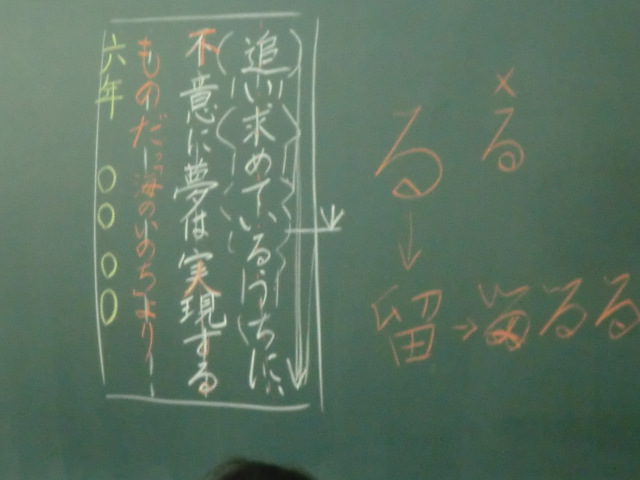 ×
る
る
↓
留→留るる
追い求めているうちに、
不意に夢は実現する
ものだ―。「海のいのち」より―
六年 ○○ ○○